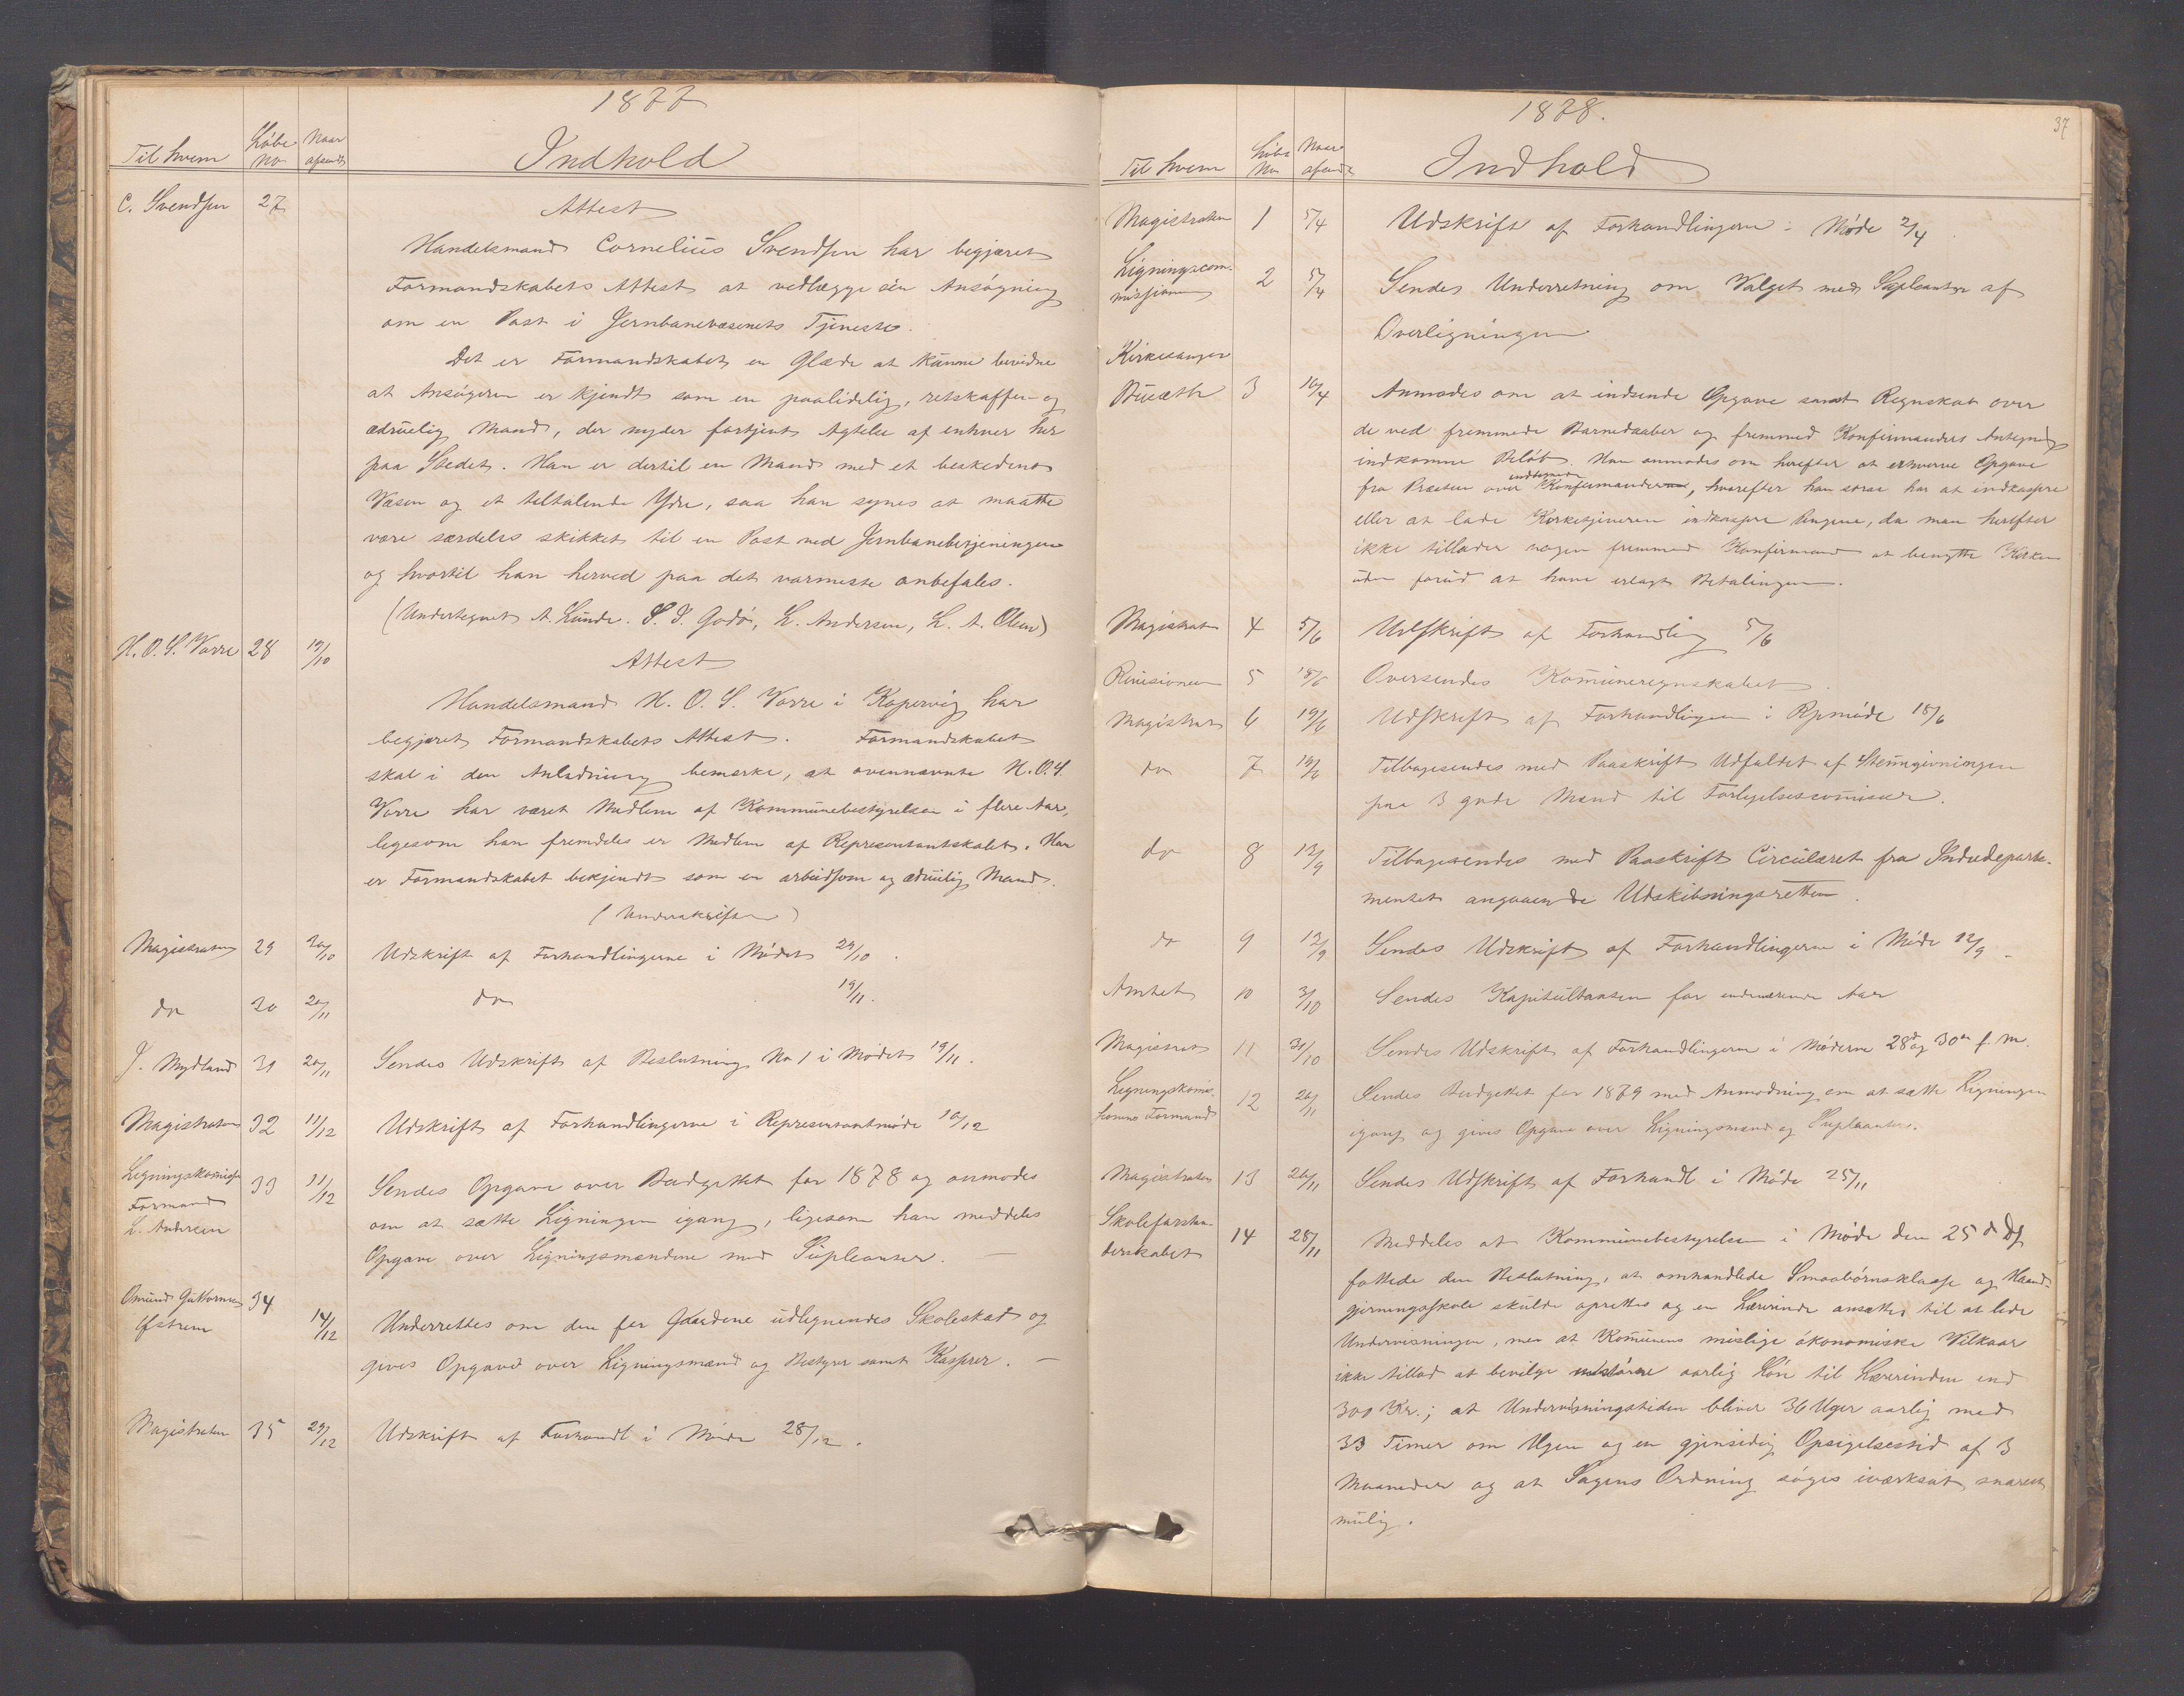 1877
Til hvem Løbe No Naar afsendt Indhold
C. Svendsen 27 Attest
Handelsmand Cornelius Svendsen har begjæret
Formandskabets Attest at vedlægge sin Ansøgning
om en Post i Jernbanevæsenets Tjeneste.
Det er Formandskabet en Glæde at kunne bevidne
at Ansøgeren er kjendt som en paalidelig, retskaffen og
ædruelig Mand, der nyder fortjent Agtelse af enhver her
paa Stedet. Han er dertil en Mand med et beskedent
Væsen og et tiltalende Ydre, saa han synes at maatte
være særdeles skikket til en Post ved Jernbanebetjeningen
og hvortil han herved paa det varmeste anbefales.
(Undertegnet A. Lunde. S. J. Godø, L. Andersen, L. A. Olsen)
H. O. S. Vorre 28 19/10 Attest
Handelsmand H. O. S. Vorre i Kopervig har
begjæret Formandskabets Attest. Formandskabet
skal i den Anledning bemærke, at ovennævnte H. O. S.
Vorre har været Medlem af Kommunebestyrelsen i flere Aar,
ligesom han fremdeles er Medlem af Representantskabet. Han
er Formandskabet bekjendt som en arbeidsom og ædruelig Mand.
(Underskrifter)
Magistraten 29 30/10 Udskrift af Forhandlingerne i Mødet 29/10.
do 30 20/11 do 19/11.
J. Mydland 31 20/11 Sendes Udskrift af Beslutning No 1 i Mødet 19/11.
Magistraten 32 11/12 Udskrift af Forhandlingerne i Representantmøde 10/12
Ligningskomiss 33 11/12 Sendes Opgave over Budgettet for 1878 og anmodes
Formand om at sætte Ligningen igang, ligesom han meddeles
L. Andersen Opgave over Ligningsmændene med Supleanter.
Omund Guttorms 34 14/12 Underrettes om den for Gaardene udlignendes Skoleskat og
gives Opgave over Ligningsmænd og Bestyrer samt Kasserer. —
Magistraten 35 29/12 Udskrift af Forhandl i Møde 28/12.
1878.
37
Til hvem Løbe No Naar afsendt Indhold
Magistraten 1 5/4 Udskrift af Forhandlingerne i Møde 2/4
Ligningscom- 2 5/4 Sendes Underretning om Valget med Supleanter af
missionen Overligningen
Kirkesanger
3 10/4 Anmodes om at indsende Opgave samt Regnskab over
de ved fremmede Barnedaaber og fremmed Konfirmanders Antegnelse
indkomne Beløb. Han anmodes om herefter at erhverve Opgave
fra Præsten over indtegnede Konfirmander, hvorefter han strax har at indkassere
eller at lade Kirketjeneren indkassere Pengene, da man herefter
ikke tillader nogen fremmed Konfirmand at benytte Kirken
uden forud at have erlagt Betalingen.
Magistrat 4 5/6 Udskrift af Forhandling 5/6
Revisionen 5 18/6 Oversendes Komuneregnskabet.
Magistrat 6 19/6 Udskrift af Forhandlingen i Rpmøde 18/6
do 7 19/6 Tilbagesendes med Paaskrift Udfaldet af Stemmgivningen
paa 3 gode Mænd til Forligelsescomissær.
do 8 13/9 Tilbagesendes med Paaskrift Circulæret fra Indredeparte-
mentet angaaende Udskibningsretten.
do 9 13/9 Sendes Udskrift af Forhandlingerne i Møde 12/9
Amtet 10 3/10 Sendes Kapitultaxten for indeværende Aar
Magistrat 11 31/10 Sendes Udskrift af Forhandlingerne i Møderne 28d og 30te f. m.
Ligningskomis- 12 26/11 Sendes Budgettet for 1879 med Anmodning om at sætte Ligningen
sionens Formand igang og gives Opgave over Ligningsmænd og Supleanter.
Magistraten 13 26/11 Sendes Udskrift af Forhandl i Møde 25/11
Skoleforstan- 14 28/11 Meddeles at Kommunebestyrelsen i Møde den 25 d Ds
derskabet fattede den Beslutning, at omhandlede Smaabørnsklasse og Haand-
gjerningsskole skulde oprettes og en Lærerinde ansættes til at lede
Undervisningen, men at Komunens mislige økonomiske Vilkaar
ikke tillod at bevilge større aarlig Løn til Lærerinden end
300 Kr.; at Undervisningstiden bliver 36 Uger aarlig med
33 Timer om Ugen og en gjensidig Opsigelsestid af 3
Maaneder og at Sagens Ordning søges iværksat snarest
mulig.